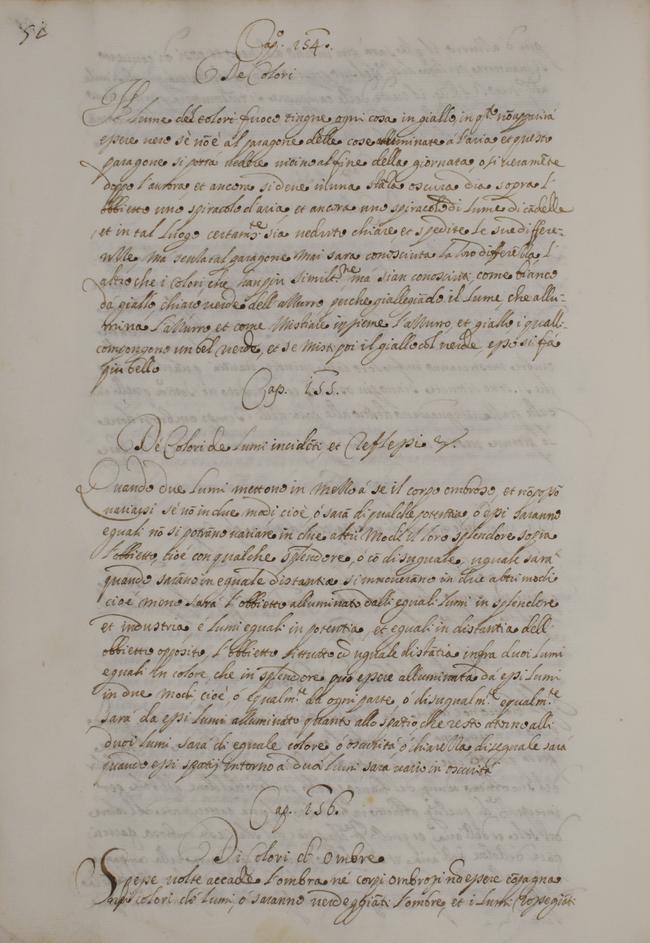 Cap.º 154.
De Colori
Il lume del colori fuoco tiugne ogni cosa in giallo, in q.to nō apparirà
essere vero sè nō è al paragone delle cose alluminate á l'aria et questo
paragone si potra vedere vicino al fine della giornata, o si veramēte
doppo l'aurora et ancora si deve in una stāza oscura dia sopra l'
obbietto uno spiracolo d'aria et ancora uno spiracolo di lume di cādella
et in tal luogo certam.te sia vedute chiare et spedite le sue differe-
nze, ma senza tal paragone mai sara conosciuta la loro differēza l'
altro che i colori che han piu simil.ne ma sian conosciuti, come bianco
da giallo chiaro verde dell'azzurro, perche giallegiādo il lume, che allu-
mina l'azzurro et come mistiare insieme l'azzurro, et giallo i quali
compongono un bel verde, et se misti poi il giallo col verde esso si fa
piu bello
Cap. 155.
De Colori de lumi incidēti, et reflessi
Quando due lumi mettono in mezzo á se il corpo ombroso, et nō possō
variarsi se nō in due modi cioé, ò sarà di qualche potentia, ò essi saranno
equali nō si potrāno variare in due altri modi il loro splendore sopra
l'obbietto, cioé con qualche splendore, ó cō disuguale, uguale sara
quando saranno in equale distantia si innoverano in due altri modi
cioé meno sarrà l'obbietto alluminato dalli equali lumi in splendore
et industria é lumi equali in potentia, et equali in distantia dell'
obbietto opposito, l'obbietto situato cō uguale distātia infra duoi lumi
equali in colore, che in splendore può essere alluminata da essi lumi
in due modi cioé, ó equalm.te da ogni parte, ó disugualm.te equalm.te
sarà da essi lumi alluminato quanto allo spatio che resto atorno alli
duoi lumi sarà di equale colore ó oscurità ó chiarezza disequale sara
quando essi spatij intorno á duoi lumi sara vario in oscurità
Cap. 156.
Di Colori dé ombre
Spesse volte accade l'ombra né corpi ombrosi nō essere cōpagna
né colori dé lumi, ó saranno verdeggiāti l'ombre, et i lumi rossegiāti